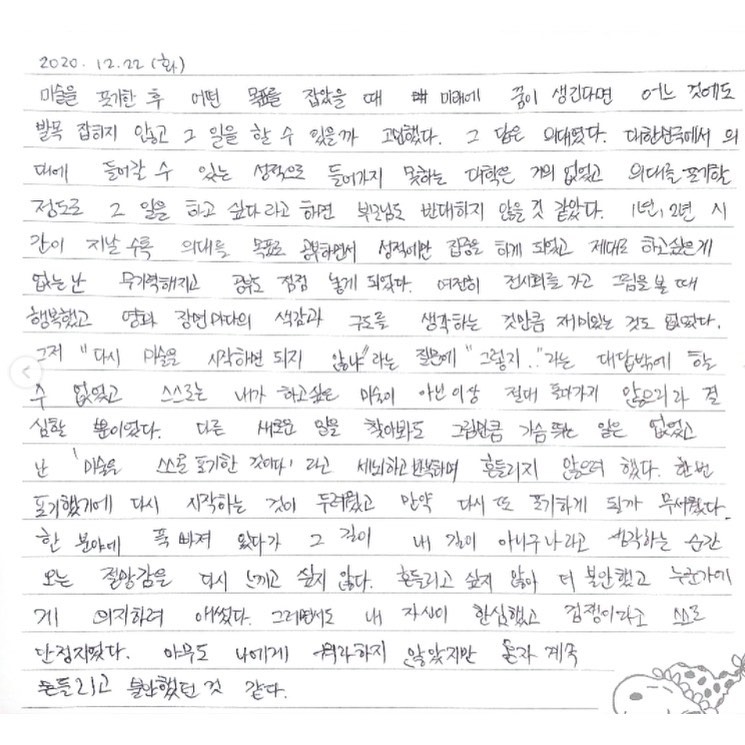 2020. 12.22 (화)
미술을 포기한 후 어떤 목표를 잡았을 때 미래에 꿈이 생긴다면 어느 것에도
발목 잡히지 않고 그 일을 할 수 있을까 고민했다. 그 답은 의대였다. 대한민국에서 의
대에 들어갈 수 있는 성적으로 들어가지 못하는 대학은 거의 없었고 의대를 포기할
정도로 그 일을 하고 싶다라고 하면 부모님도 반대하지 않을 것 같았다. 1년, 2년 시
간이 지날수록 의대를 목표로 공부하면서 성적에만 집중을 하게 되었고 제대로 하고싶은게
없는 난 무기력해지고 공부도 점점 놓게 되었다. 여전히 전시회를 가고 그림을 볼 때
행복했고 영화 장면마다의 색감과 구도를 생각하는 것만큼 재미있는 것도 없었다.
그저 "다시 미술을 시작하면 되지 않냐"라는 질문에 "그렇지.."라는 대답밖에 할
수 없었고 스스로는 내가 하고싶은 미술이 아닌 이상 절대 돌아가지 않으리라 결
심할 뿐이었다. 다른 새로운 일을 찾아봐도 그림만큼 가슴 뛰는 일은 없었고
난 '미술을 스스로 포기한 것이다' 라고 세뇌하고 반복하며 흔들리지 않으려 했다. 한번
포기했기에 다시 시작하는 것이 두려웠고 만약 다시 또 포기하게 될까 무서웠다.
한 분야에 푹 빠져 있다가 그 길이 내 길이 아니구나라고 생각하는 순간
오는 절망감을 다시 느끼고 싶지 않다. 흔들리고 싶지 않아 더 불안했고 누군가에
게 의지하려 애썼다. 그러면서도 내 자신이 한심했고 겁쟁이라고 스스로
단정지었다. 아무도 나에게 뭐라하지 않았지만 혼자 계속
흔들리고 불안했던 것 같다.